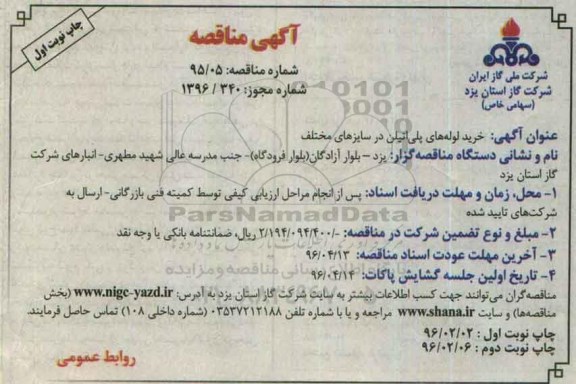 چاپ نوبت اول
آگهی مناقصه
شماره مناقصه: ۹۵/۰۵
شماره مجوز: ۳۴۰ / ۱۳۹۶
شرکت ملی گاز ایران
شرکت گاز استان یزد
(سهامی خاص)
عنوان آگهی: خرید لوله‌های پلی‌اتیلن در سایزهای مختلف
نام و نشانی دستگاه مناقصه‌گزار: یزد – بلوار آزادگان(بلوار فرودگاه)- جنب مدرسه عالی شهید مطهری- انبارهای شرکت
گاز استان یزد
۱- محل، زمان و مهلت دریافت اسناد: پس از انجام مراحل ارزیابی کیفی توسط کمیته فنی بازرگانی- ارسال به
شرکت‌های تایید شده
۲- مبلغ و نوع تضمین شرکت در مناقصه: /۲/۱۹۴/۰۹۴/۴۰۰- ریال، ضمانتنامه بانکی یا وجه نقد
۳- آخرین مهلت عودت اسناد مناقصه: ۹۶/۰۴/۱۳
۴- تاریخ اولین جلسه گشایش پاکات: ۹۶/۰۴/۱۴
مناقصه‌گران می‌توانند جهت کسب اطلاعات بیشتر به سایت شرکت گاز استان یزد به آدرس: www.nigc-yazd.ir (بخش
مناقصه‌ها) و سایت www.shana.ir مراجعه و یا با شماره تلفن ۰۳۵۳۷۲۱۲۱۸۸ (شماره داخلی ۱۰۸) تماس حاصل فرمایند.
چاپ نوبت اول : ۹۶/۰۲/۰۲
چاپ نوبت دوم : ۹۶/۰۲/۰۶
روابط عمومی
ParsNamadData